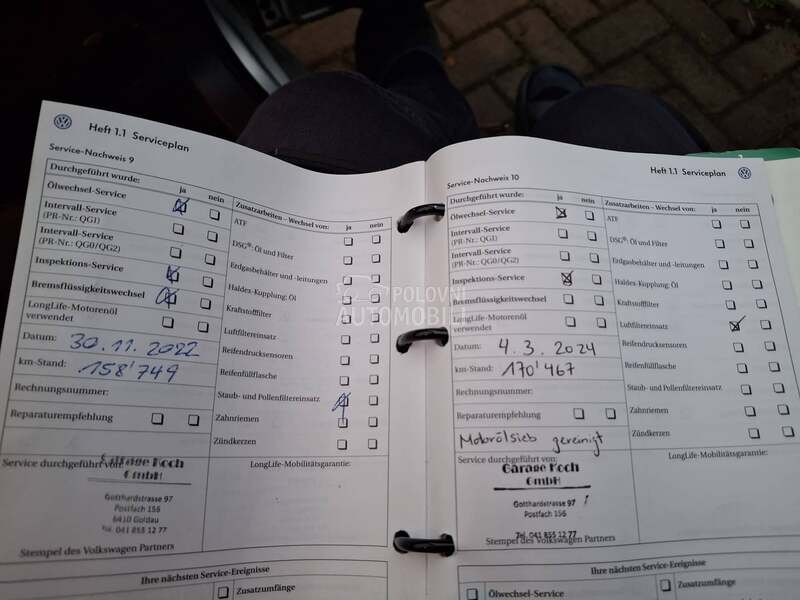 Heft 1.1 Serviceplan
Service-Nachweis 9
Durchgeführt wurde:
ja
nein
Ölwechsel-Service
Intervall-Service
(PR-Nr.: QG1)
Intervall-Service
(PR-Nr.: QG0/QG2)
Inspektions-Service
Bremsflüssigkeitswechsel
LongLife-Motorenöl
verwendet
Datum: 30.11.2022
km-Stand: 158'749
Rechnungsnummer:
Reparaturempfehlung
Service durchgeführt von:
Garage Koch
GmbH
Gotthardstrasse 97
Postfach 156
6410 Goldau
Tel. 041 855 12 77
Stempel des Volkswagen Partners
Zusatzarbeiten – Wechsel von:
ja
nein
ATF
DSG®: Öl und Filter
Erdgasbehälter und -leitungen
Haldex-Kupplung: Öl
Kraftstofffilter
Luftfiltereinsatz
Reifendrucksensoren
Reifenfüllflasche
Staub- und Pollenfiltereinsatz
Zahnriemen
Zündkerzen
LongLife-Mobilitätsgarantie:
Ihre nächsten Service-Ereignisse
Zusatzumfänge
Heft 1.1 Serviceplan
Service-Nachweis 10
Durchgeführt wurde:
ja
nein
Ölwechsel-Service
Intervall-Service
(PR-Nr.: QG1)
Intervall-Service
(PR-Nr.: QG0/QG2)
Inspektions-Service
Bremsflüssigkeitswechsel
LongLife-Motorenöl
verwendet
Datum: 4.3.2024
km-Stand: 170'467
Rechnungsnummer:
Reparaturempfehlung
Motorölsieb gereinigt
Service durchgeführt von:
Garage Koch
GmbH
Gotthardstrasse 97
Postfach 156
Tel. 041 855 12 77
Stempel des Volkswagen Partners
Zusatzarbeiten – Wechsel von:
ja
nein
ATF
DSG®: Öl und Filter
Erdgasbehälter und -leitungen
Haldex-Kupplung: Öl
Kraftstofffilter
Luftfiltereinsatz
Reifendrucksensoren
Reifenfüllflasche
Staub- und Pollenfiltereinsatz
Zahnriemen
Zündkerzen
LongLife-Mobilitätsgarantie:
Ihre nächsten Service-Ereignisse
Ölwechsel-Service
Zusatzumfänge
POLOVNI
AUTOMOBILI